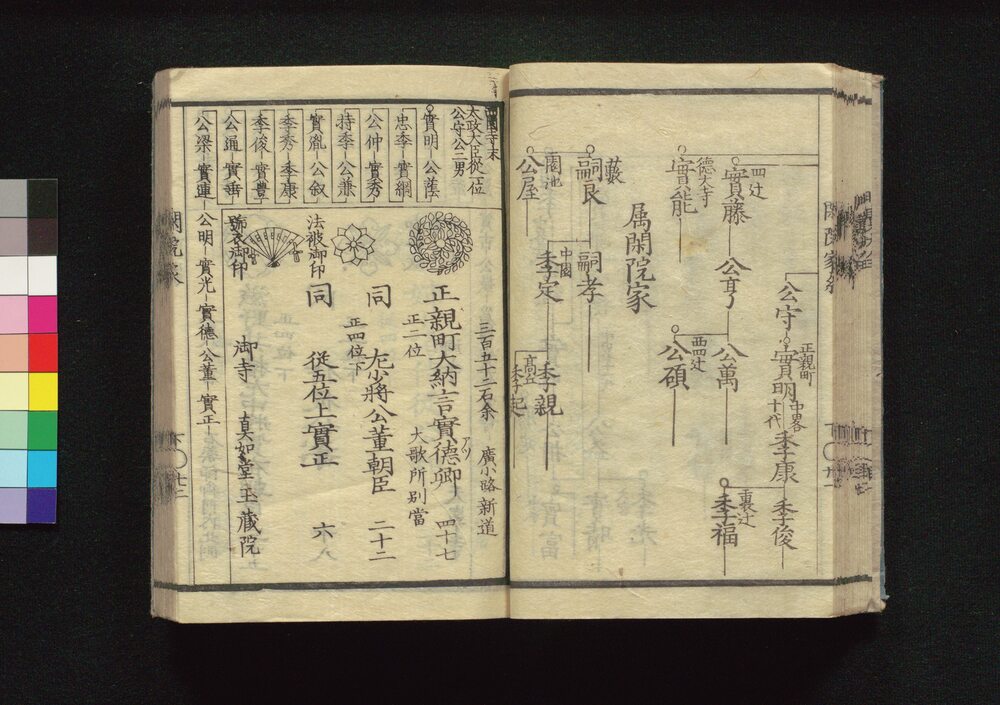 公守
正親町
實明
中畧
十代
季康
季俊
裏辻
季福
四辻
實藤
公亨
公萬
西四辻
公碩
德大寺
實能
属閑院家
藪
嗣良
嗣孝
中園
季定
季親
高丘
季起
園池
公屋
太政大臣從一位
公守公二男
實明 公蔭
忠季 實綱
公仲 實秀
持季 公兼
實胤 公叙
季秀 季康
季俊 實豊
公通 實垂
公梁 實連
公明 實光 實德 公董 實正
三百五十二石余 廣小路新道
正親町大納言實德卿 四十七
正二位 大歌所別當
同 左少將公董朝臣 二十二
正四位下
同 從五位上實正 六八
法被御印
號衣御印
御寺 真如堂玉蔵院